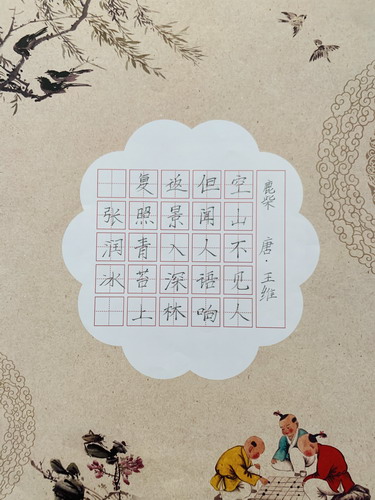 鹿柴 唐·王维
空山不见人
但闻人语响
返景入深林
复照青苔上
张润冰